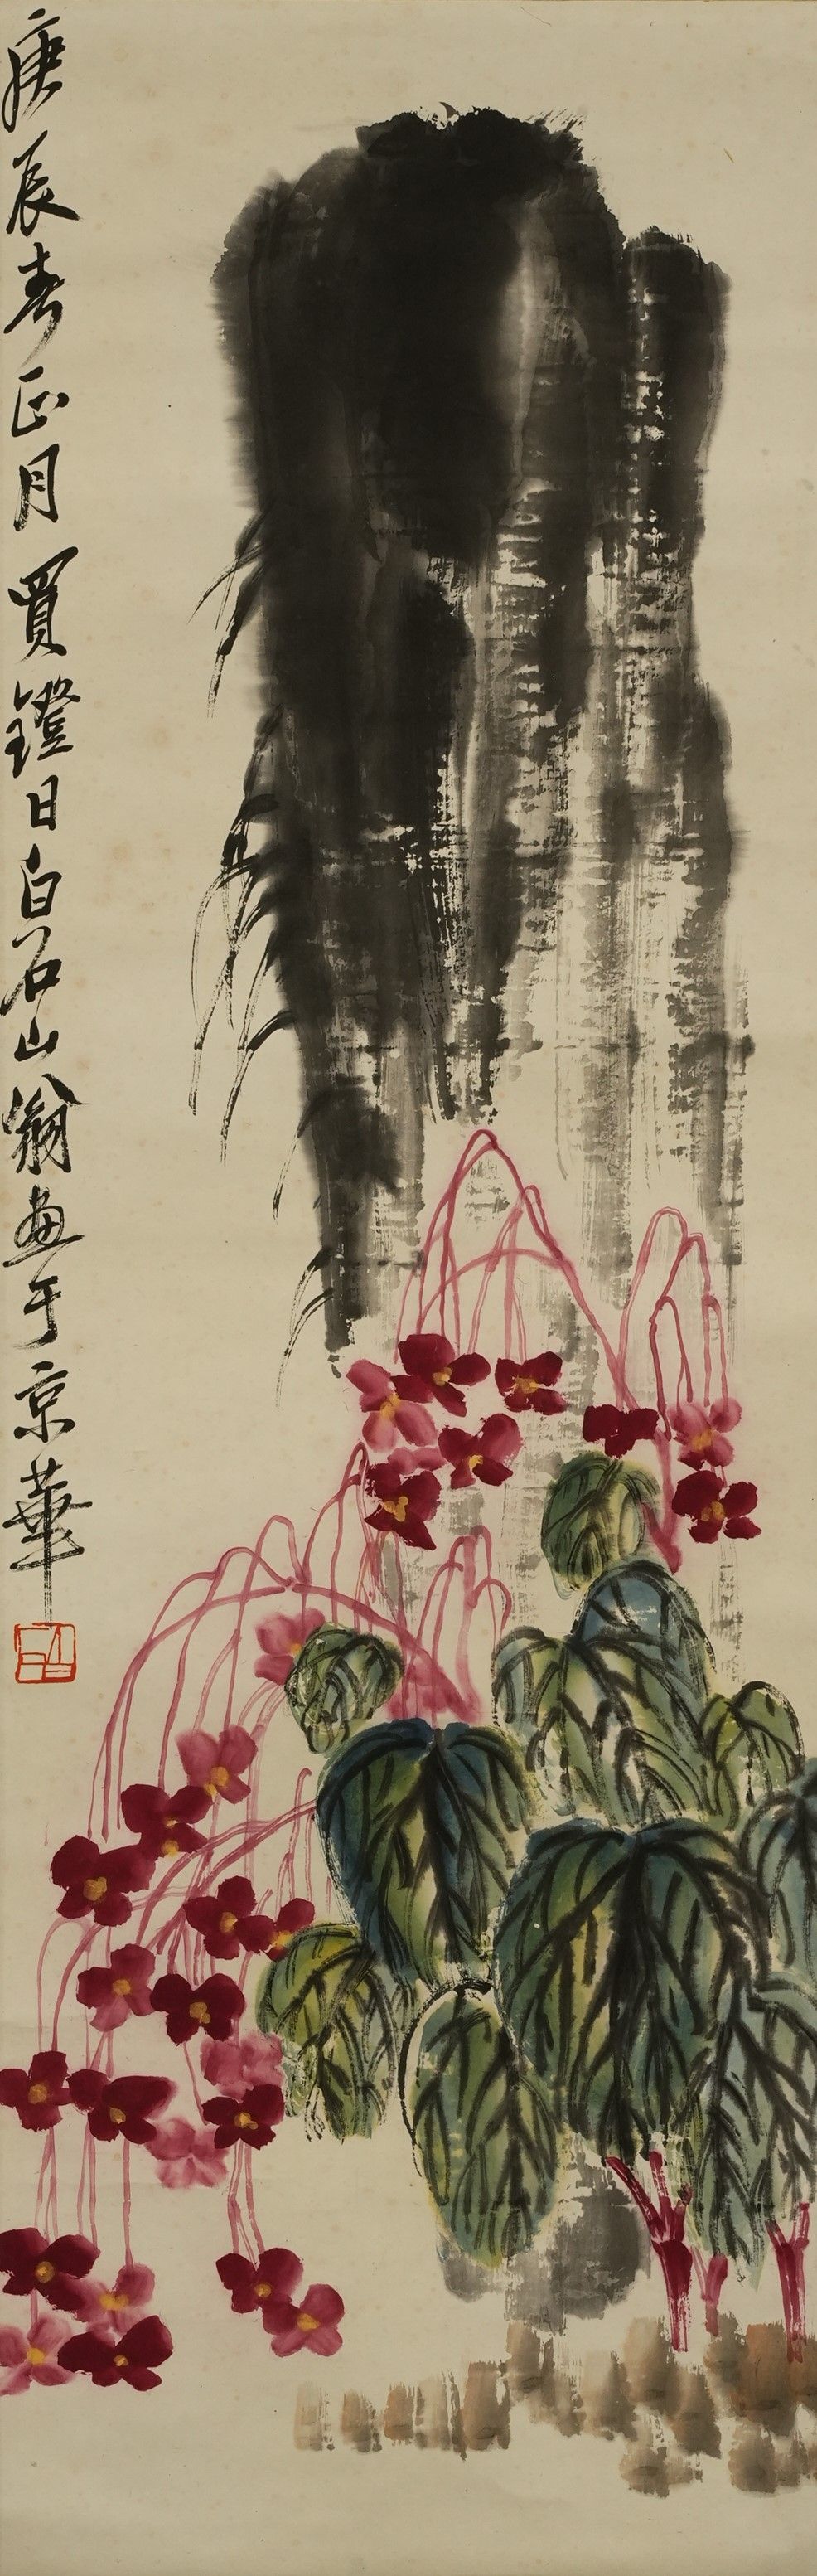 庚辰春正月買鐙日白石山翁畫于京華
白石